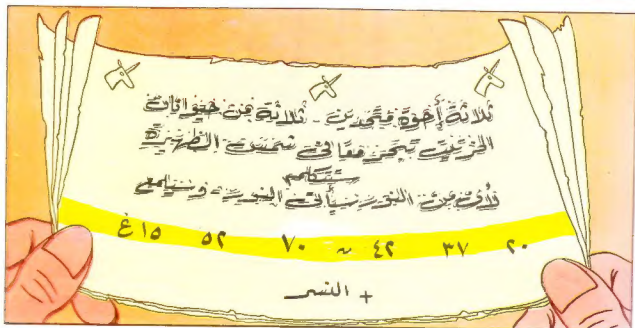 ثلاثة أخوة متحدين - ثلاثة من حيوانات
الخرتيت تبحر معا في شمس الظهيرة
ستتكلم
لأن من النور سيأتى النور - وسيلمع
٢٠ ٣٧ ٤٢ ~ ٧٠ ٥٢ ١٥ غ
+ النسر